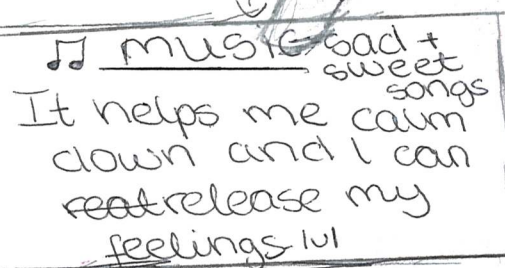 ♫ music sad +
sweet
songs
It helps me calm
down and I can
reat release my
feelings lul